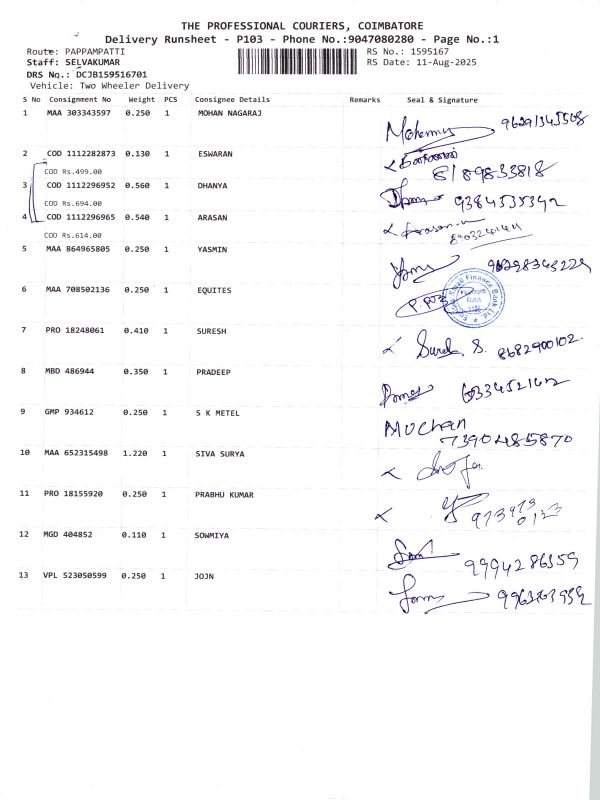 THE PROFESSIONAL COURIERS, COIMBATORE
Delivery Runsheet - P103 - Phone No.:9047080280 - Page No.:1
Route: PAPPAMPATTI RS No.: 1595167
Staff: SELVAKUMAR RS Date: 11-Aug-2025
DRS No.: DCJB159516701
Vehicle: Two Wheeler Delivery
S No Consignment No Weight PCS Consignee Details Remarks Seal & Signature
1 MAA 303343597 0.250 1 MOHAN NAGARAJ
2 COD 1112282873 0.130 1 ESWARAN
COD Rs.499.00 8189833818
3 COD 1112296952 0.560 1 DHANYA
COD Rs.694.00 9384535342
4 COD 1112296965 0.540 1 ARASAN
COD Rs.614.00
5 MAA 864965805 0.250 1 YASMIN
6 MAA 708502136 0.250 1 EQUITES
7 PRO 18248061 0.410 1 SURESH
Suresh S. 8682900102.
8 MBD 486944 0.350 1 PRADEEP
9 GMP 934612 0.250 1 S K METEL
7390485870
10 MAA 652315498 1.220 1 SIVA SURYA
11 PRO 18155920 0.250 1 PRABHU KUMAR
12 MGD 404852 0.110 1 SOWMIYA
9994286359
13 VPL 523050599 0.250 1 JOJN